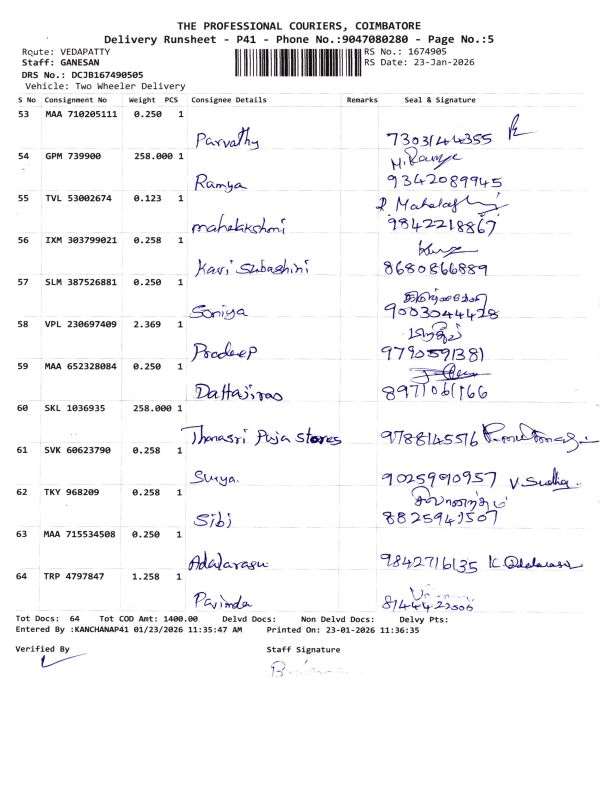 THE PROFESSIONAL COURIERS, COIMBATORE
Delivery Runsheet - P41 - Phone No.:9047080280 - Page No.:5
Route: VEDAPATTY RS No.: 1674905
Staff: GANESAN RS Date: 23-Jan-2026
DRS No.: DCJB167490505
Vehicle: Two Wheeler Delivery
S No Consignment No Weight PCS Consignee Details Remarks Seal & Signature
53 MAA 710205111 0.250 1
Parvathy 7303144355
54 GPM 739900 258.000 1
M. Ramya
Ramya 9342089945
55 TVL 53002674 0.123 1
mahalakshmi 9842218867
56 IXM 303799021 0.258 1
Kavi Subashini 8680866889
57 SLM 387526881 0.250 1
Soniya 9003044428
58 VPL 230697409 2.369 1
Pradeep 9790591381
59 MAA 652328084 0.250 1
Dattajirao 8971061166
60 SKL 1036935 258.000 1
Thanasri Puja Stores 9788145516
61 SVK 60623790 0.258 1
Surya. 9025990957 V. Sudha
62 TKY 968209 0.258 1
Sibi 8825941507
63 MAA 715534508 0.250 1
Adalarasu 9842716135
64 TRP 4797847 1.258 1
Pavinda
Tot Docs: 64 Tot COD Amt: 1400.00 Delvd Docs: Non Delvd Docs: Delvy Pts:
Entered By :KANCHANAP41 01/23/2026 11:35:47 AM Printed On: 23-01-2026 11:36:35
Verified By Staff Signature